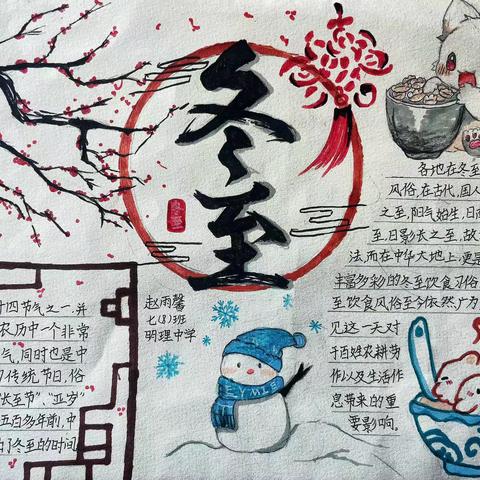 冬至
各地在冬至
风俗,在古代,国人
之至,阳气始生,日南
至,日影长之至,故
法,而在中华大地上,更是
丰富多彩的冬至饮食习俗
至饮食风俗至今依然广为
见这一天对
于百姓农耕劳
作以及生活作
息带来的重
要影响。
赵雨馨
七(8)班
明理中学
十四节气之一,并
农历中一个非常
气,同时也是中
传统节日,俗
长至节”、“亚岁”
五百多年前,中
了冬至的时间
EYMIE